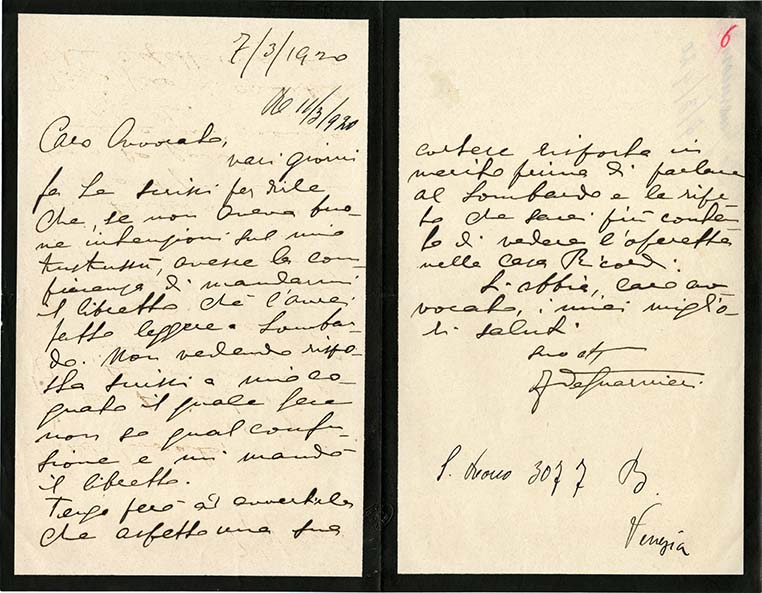 7/3/1920
11/3/1920
Caro Avvocato,
vari giorni
fa Le scrissi per dirle
che, se non aveva buo-
ne intenzioni sul mio
avesse la com-
piacenza di mandarmi
il libretto chè l'avrei
fatto leggere a Lombar-
do. Non vedendo rispo-
sta scrissi a mio co-
gnato il quale fece
non so qual confu-
sione e mi mandò
il libretto.
Tengo però ad avvertirla
che aspetto una sua
6
cortese risposta in
merito prima di parlare
al Lombardo e le ripe-
to che sarei più conten-
to di vedere l'operetta
nella Casa Ricordi.
Si abbia, caro av-
vocato, i miei miglio-
ri saluti
suo
F de Guarnieri
S. 3077 B.
Venezia